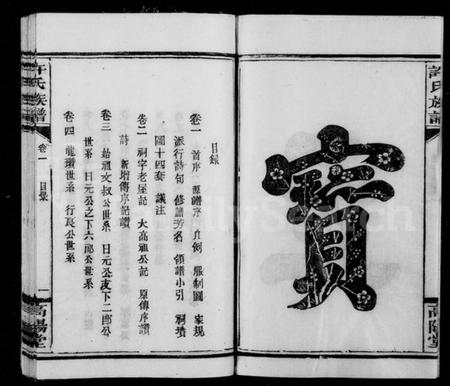 許氏族譜
高陽堂
寳
目錄
卷一 首序 源譜序 凡例 服制圖 家規
派行詩句 修譜芳名 領譜小引 祠墳
圖十四套 議注
卷二 祠宇老屋記 大高祖公記 原傳序讚
詩 新增傳序記讚
卷三 始祖文叔公世系 日元公支下二郎公
世系 日元公之下六郎公世系
卷四 龍瓚世系 行長公世系
許氏族譜
卷一
目錄
一
高陽堂